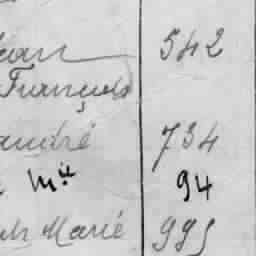 ean 542
François
andré 734
Me 94
Marie 995